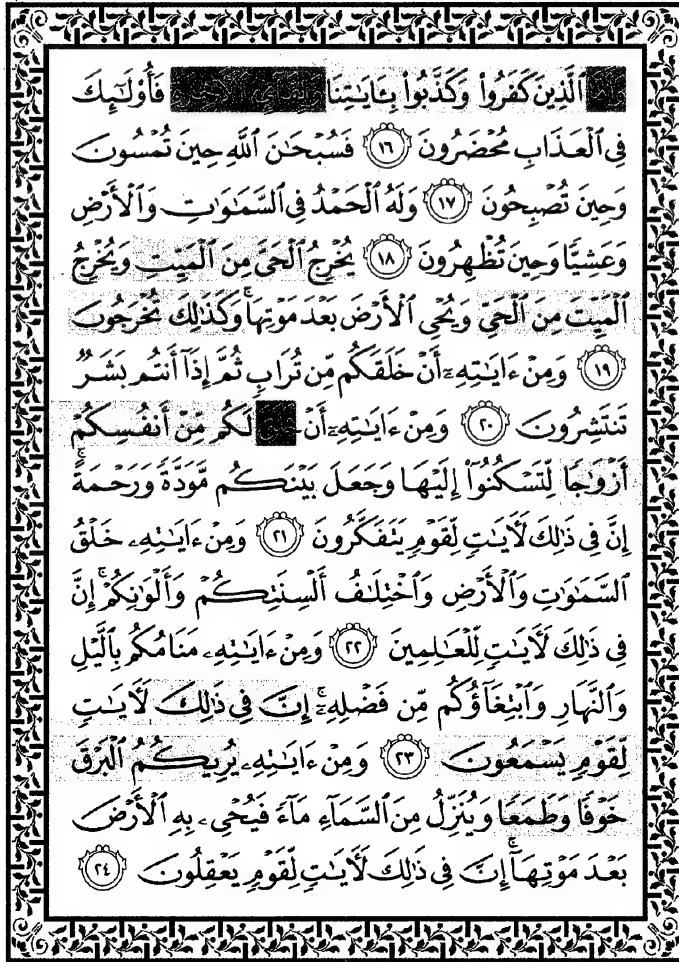 وَأَمَّا ٱلَّذِينَ كَفَرُوا۟ وَكَذَّبُوا۟ بِـَٔايَـٰتِنَا وَلِقَآئِ ٱلْـَٔاخِرَةِ فَأُو۟لَـٰٓئِكَ
فِى ٱلْعَذَابِ مُحْضَرُونَ ١٦ فَسُبْحَـٰنَ ٱللَّهِ حِينَ تُمْسُونَ
وَحِينَ تُصْبِحُونَ ١٧ وَلَهُ ٱلْحَمْدُ فِى ٱلسَّمَـٰوَٰتِ وَٱلْأَرْضِ
وَعَشِيًّا وَحِينَ تُظْهِرُونَ ١٨ يُخْرِجُ ٱلْحَىَّ مِنَ ٱلْمَيِّتِ وَيُخْرِجُ
ٱلْمَيِّتَ مِنَ ٱلْحَىِّ وَيُحْىِ ٱلْأَرْضَ بَعْدَ مَوْتِهَا ۚ وَكَذَٰلِكَ تُخْرَجُونَ
١٩ وَمِنْ ءَايَـٰتِهِۦٓ أَنْ خَلَقَكُم مِّن تُرَابٍ ثُمَّ إِذَآ أَنتُم بَشَرٌ
تَنتَشِرُونَ ٢٠ وَمِنْ ءَايَـٰتِهِۦٓ أَنْ خَلَقَ لَكُم مِّنْ أَنفُسِكُمْ
أَزْوَٰجًا لِّتَسْكُنُوٓا۟ إِلَيْهَا وَجَعَلَ بَيْنَكُم مَّوَدَّةً وَرَحْمَةً ۚ
إِنَّ فِى ذَٰلِكَ لَـَٔايَـٰتٍ لِّقَوْمٍ يَتَفَكَّرُونَ ٢١ وَمِنْ ءَايَـٰتِهِۦ خَلْقُ
ٱلسَّمَـٰوَٰتِ وَٱلْأَرْضِ وَٱخْتِلَـٰفُ أَلْسِنَتِكُمْ وَأَلْوَٰنِكُمْ ۚ إِنَّ
فِى ذَٰلِكَ لَـَٔايَـٰتٍ لِّلْعَـٰلِمِينَ ٢٢ وَمِنْ ءَايَـٰتِهِۦ مَنَامُكُم بِٱلَّيْلِ
وَٱلنَّهَارِ وَٱبْتِغَآؤُكُم مِّن فَضْلِهِۦٓ ۚ إِنَّ فِى ذَٰلِكَ لَـَٔايَـٰتٍ
لِّقَوْمٍ يَسْمَعُونَ ٢٣ وَمِنْ ءَايَـٰتِهِۦ يُرِيكُمُ ٱلْبَرْقَ
خَوْفًا وَطَمَعًا وَيُنَزِّلُ مِنَ ٱلسَّمَآءِ مَآءً فَيُحْىِۦ بِهِ ٱلْأَرْضَ
بَعْدَ مَوْتِهَآ ۚ إِنَّ فِى ذَٰلِكَ لَـَٔايَـٰتٍ لِّقَوْمٍ يَعْقِلُونَ ٢٤